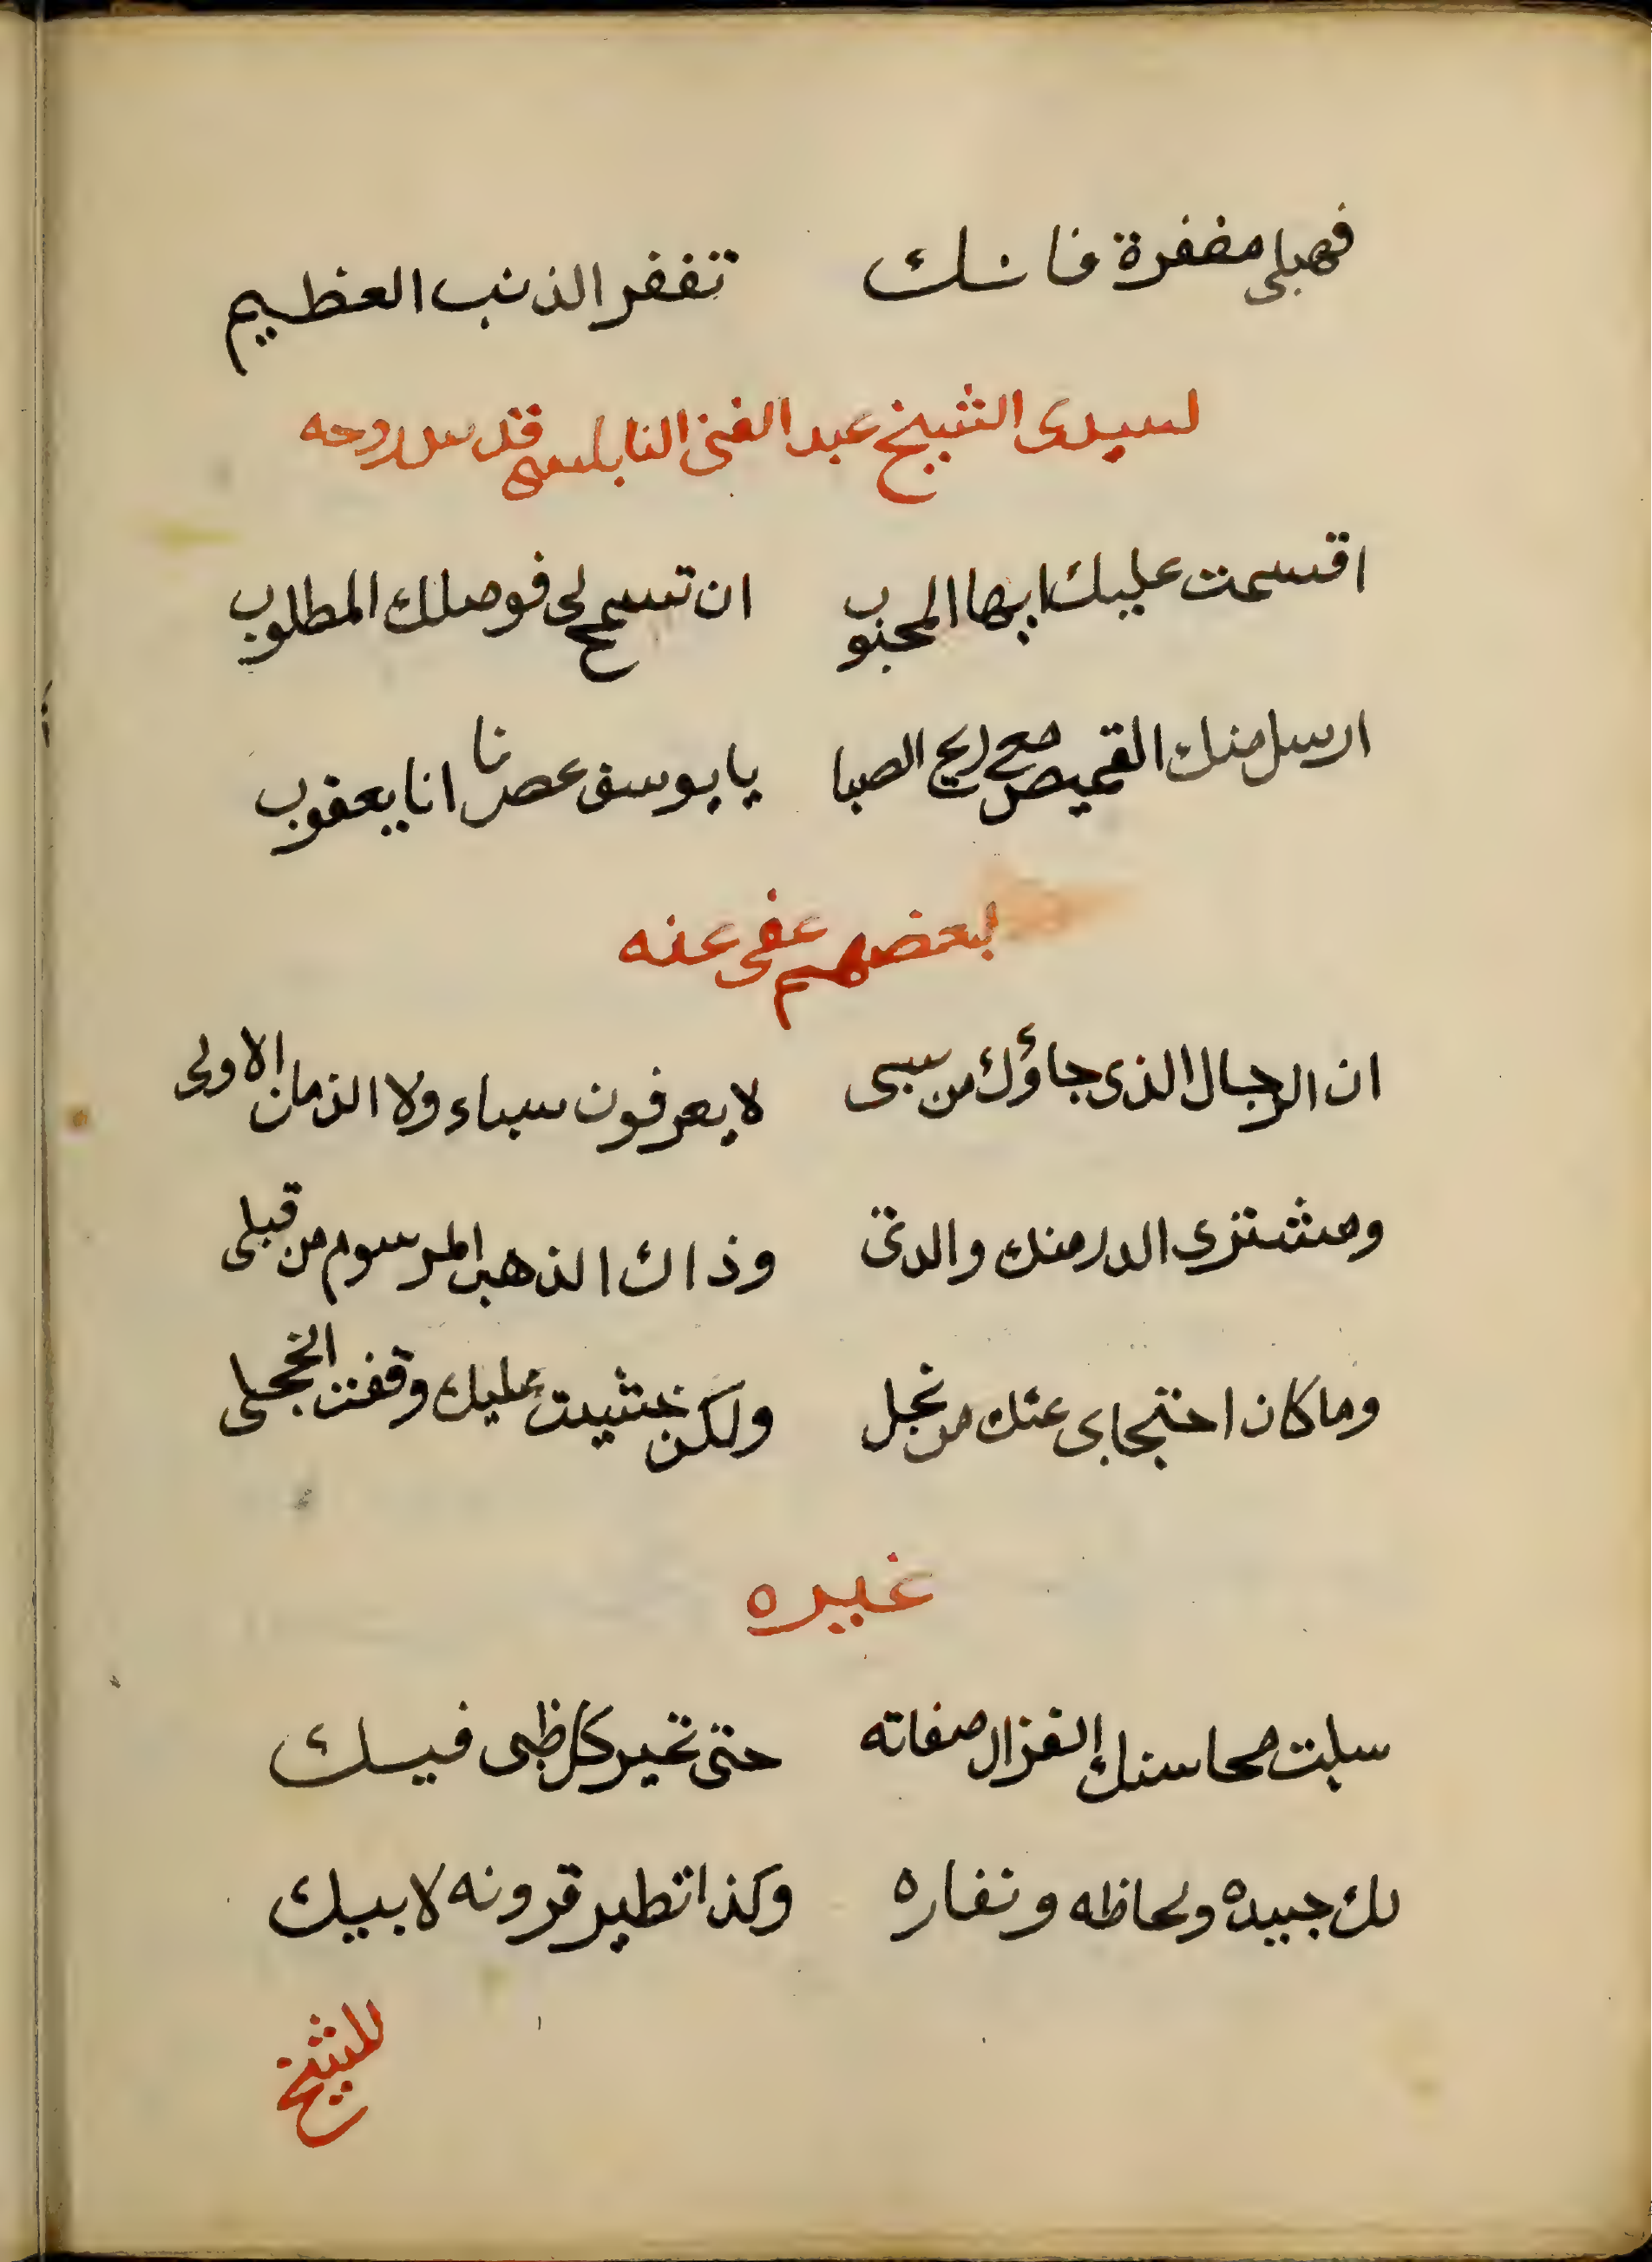 فهبلى مغفرة فانك تغفر الذنب العظيم
لسيدى الشيخ عبد الغنى النابلسى قدس روحه
اقسمت عليك ايها المحبوب ان تسمح لى فوصلك المطلوب
ارسل منك القميص مع ريح الصبا يا يوسف عصرنا انا يعقوب
لبعضهم عفى عنه
ان الرجال الذى جاؤك من سبى لا يعرفون سباء ولا الزمان الاولى
ومشترى الدر منك والدتى وذاك الذهب المرسوم من قبلى
وما كان احتجابى عنك من نجل ولكن خشيت عليك وقفت الخجلى
غيره
سلبت محاسنك الغزال صفاته حتى تحير كل ظبى فيك
لك جيده ولحاظه ونفاره وكذا تطير قرونه لابيك
للشيخ